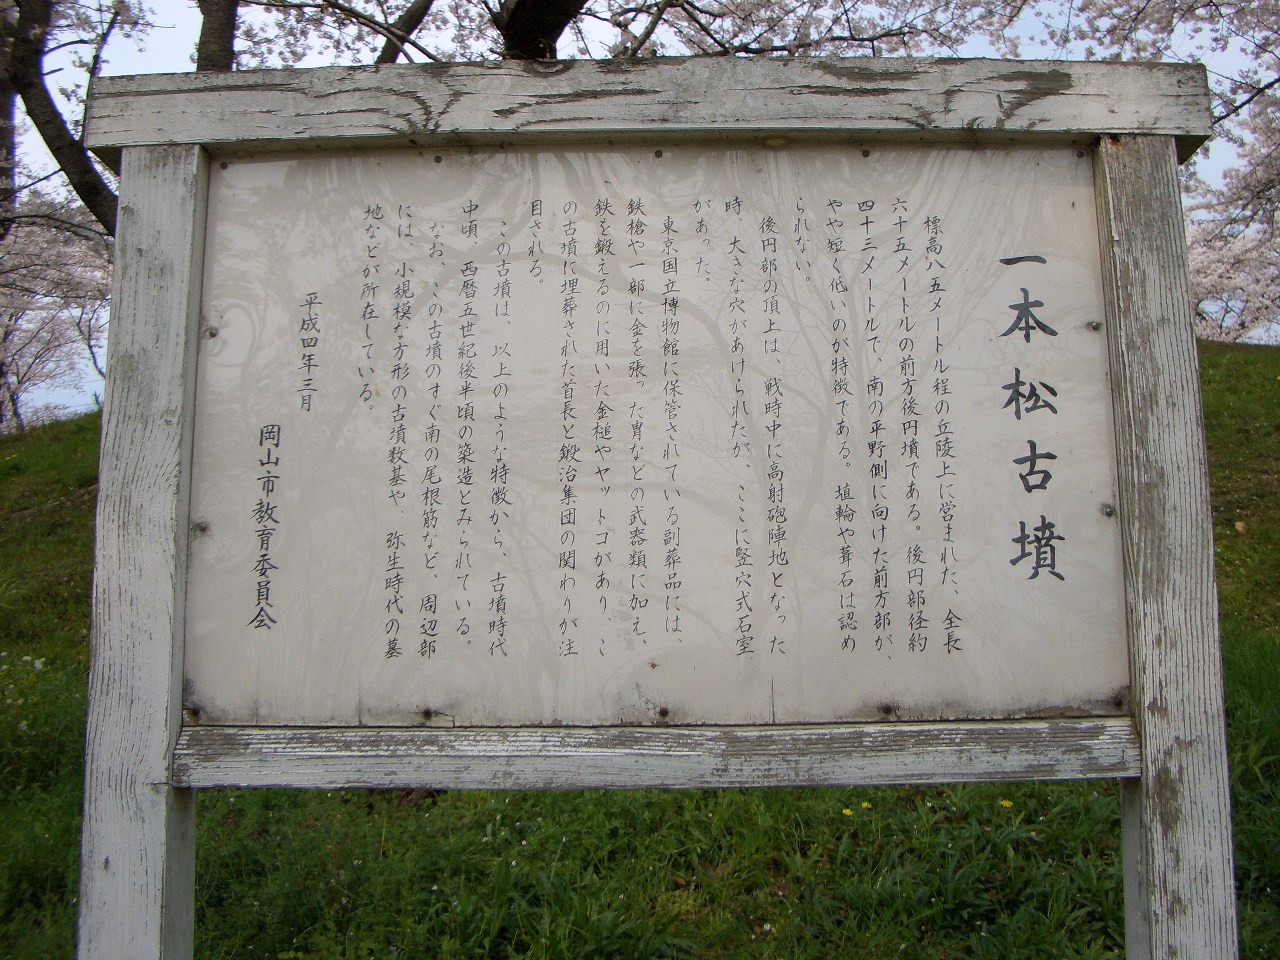 一本松古墳
標高八五メートル程の丘陵上に営まれた、全長
六十五メートルの前方後円墳である。後円部径約
四十三メートルで、南の平野側に向けた前方部が、
やや短く低いのが特徴である。埴輪や葺石は認め
られない。
後円部の頂上は、戦時中に高射砲陣地となった
時、大きな穴があけられたが、ここに竪穴式石室
があった。
東京国立博物館に保管されている副葬品には、
鉄槍や一部に金を張った冑などの武器類に加え、
鉄を鍛えるのに用いた金槌やヤットコがあり、こ
の古墳に埋葬された首長と鍛冶集団の関わりが注
目される。
この古墳は、以上のような特徴から、古墳時代
中頃　西暦五世紀後半頃の築造とみられている。
なお、この古墳のすぐ南の尾根筋など、周辺部
には、小規模な方形の古墳数基や、弥生時代の墓
地などが所在している。
平成四年三月
岡山市教育委員会